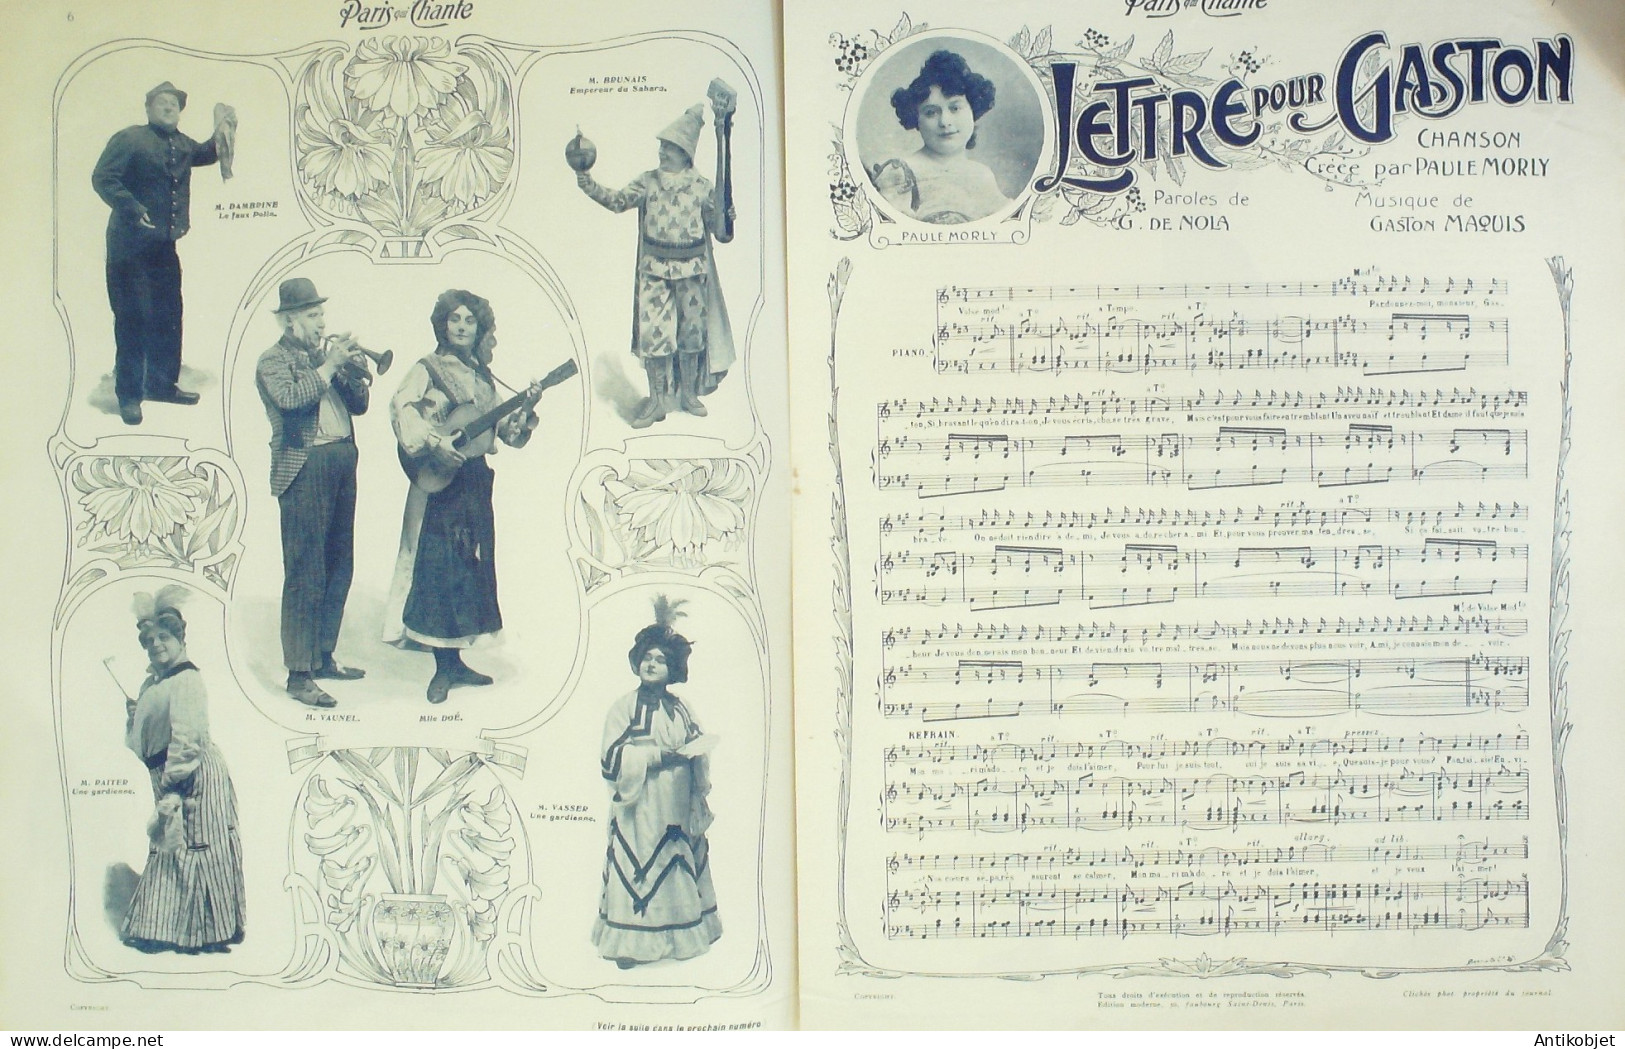 6
Paris qui Chante
M. DAMBRINE
Le faux Polin.
M. BRUNAIS
Empereur du Sahara.
M. VAUNEL.
Mlle DOÉ.
M. PAITER
Une gardienne.
M. VASSER
Une gardienne.
COPYRIGHT
(Voir la suite dans le prochain numéro)
Paris qui Chante
LETTRE POUR GASTON
CHANSON
Créée par PAULE MORLY
Paroles de
G. DE NOLA
Musique de
GASTON MAQUIS
PAULE MORLY
Mod!to
Valse mod!to
rit.
a T°
a Tempo.
rit.
a T°
Pardonnez-moi, monsieur, Gas-
PIANO.
rit.
a T°
ton, Si, bravant le qu'en dira-t-on, Je vous écris, chose très grave, Mais c'est pour vous faire en tremblant Un aveu naïf et troublant Et dame il faut que je sois
rit.
a T°
bra - ve. On ne doit rien dire à de - mi, Je vous a - dore cher a - mi Et, pour vous prouver ma ten - dres - se, Si ça fai - sait vo - tre bon -
M! de Valse Mod!to
heur Je vous don - nerais mon hon - neur Et deviendrais vo - tre maî - tres - se. Mais nous ne devons plus nous voir, A - mi, je connais mon de - voir.
REFRAIN.
rit.
a T°
rit.
a T°
rit.
a T°
rit.
a T°
pressez.
Mon ma - ri m'ado - re et je dois l'aimer, Pour lui je suis tout, oui je suis sa vi - e, Que suis-je pour vous? Fan - tai - sie! En - vi -
a T°
rit.
a T°
rit.
allarg.
ad lib.
- e! Nos cœurs sé - parés sauront se calmer, Mon ma - ri m'ado - re et je dois l'aimer, et je veux l'ai - mer!
COPYRIGHT.
Tous droits d'exécution et de reproduction réservés.
Edition moderne, 10, Faubourg Saint-Denis, Paris.
Clichés phot. propriété du journal.
Antikobjet